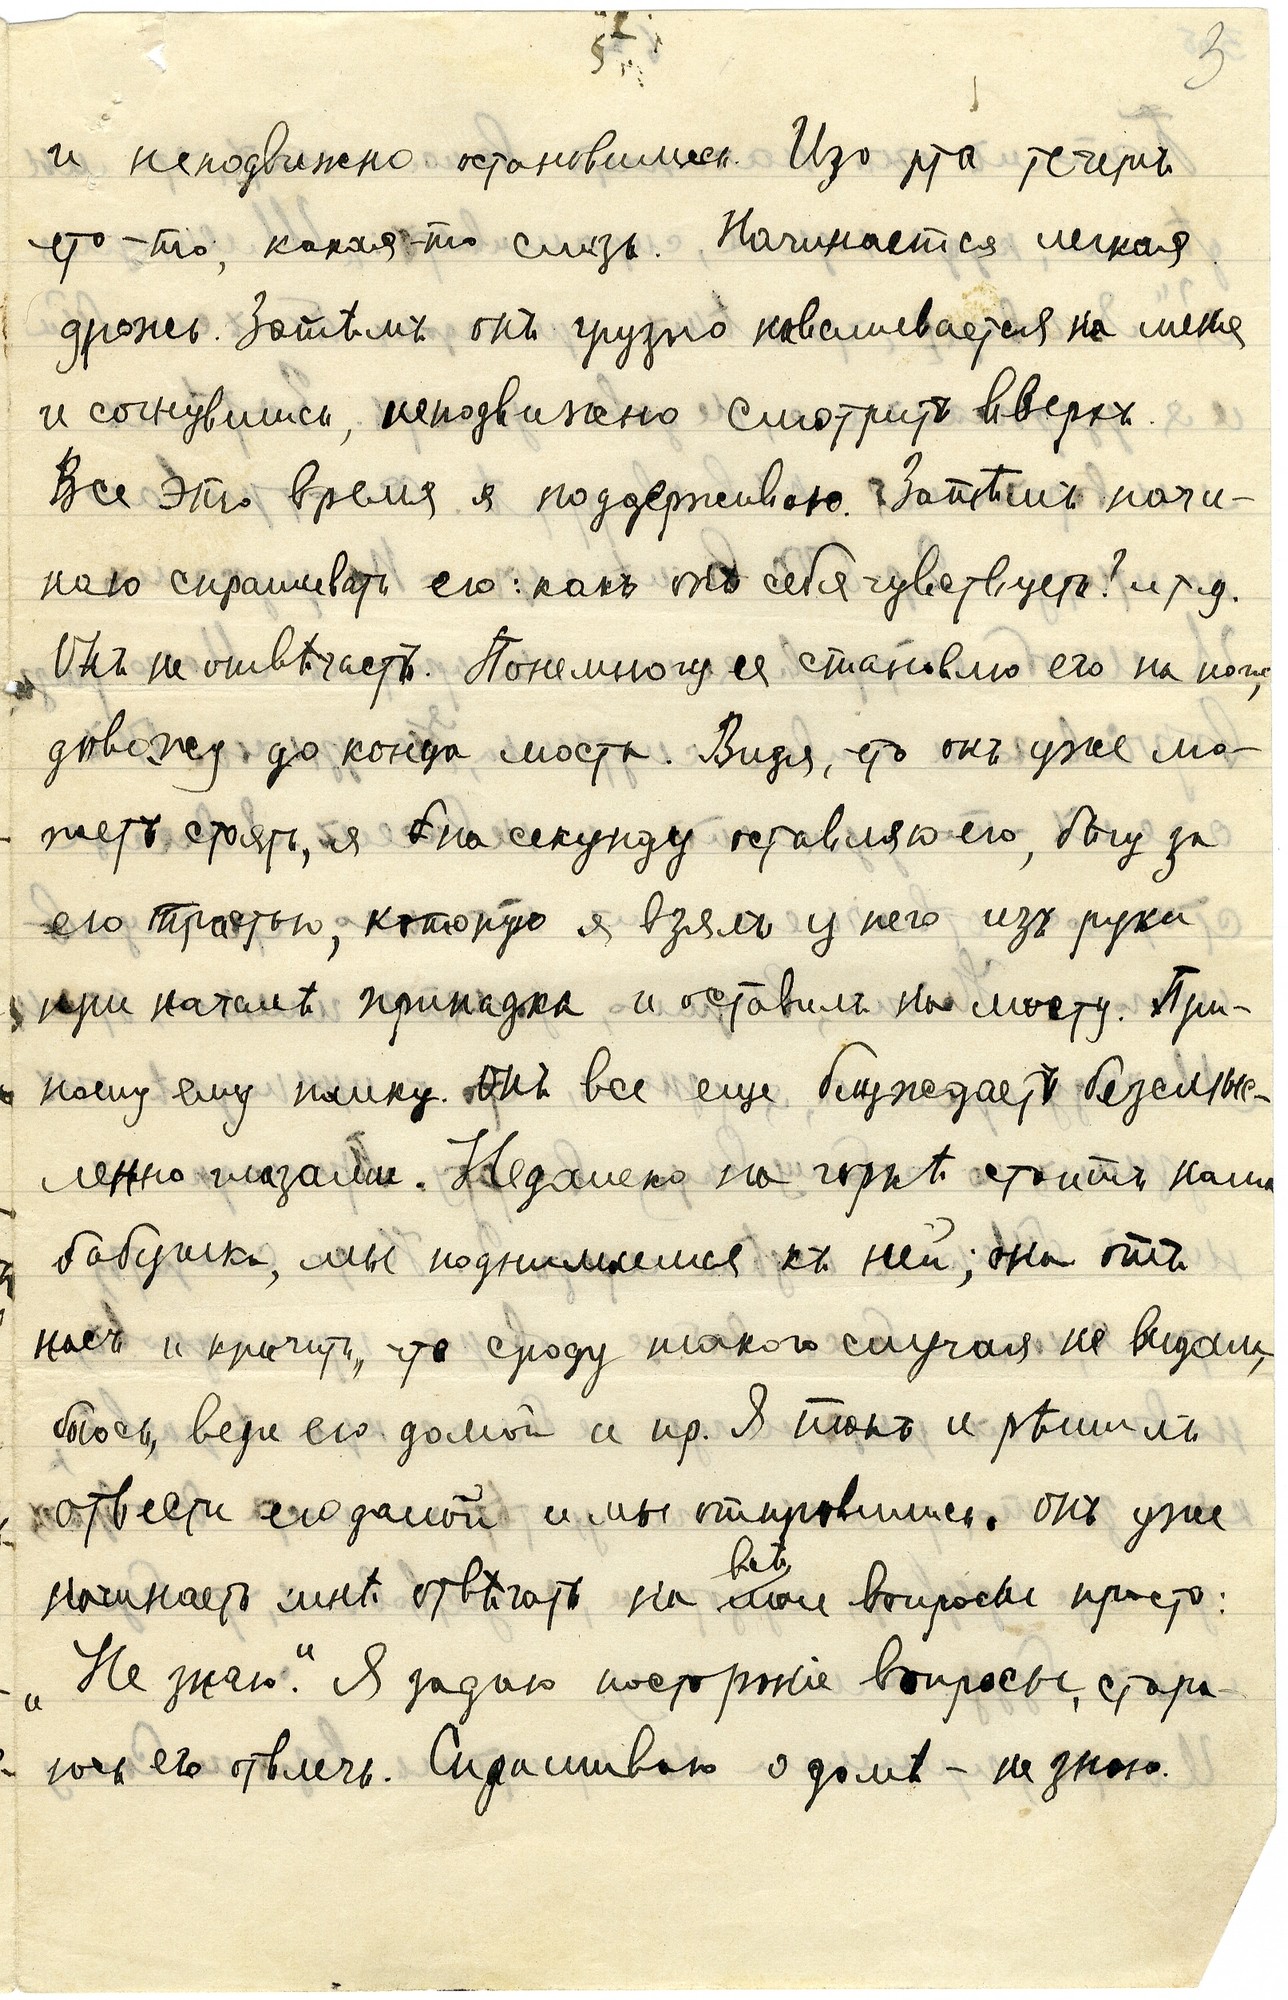 3
и неподвижно остановились. Изо рта течетъ
что-то, какая-то слизь. Начинается легкая
дрожь. Затѣмъ онъ грузно наваливается на меня
и согнувшись, неподвижно смотритъ вверхъ.
Все это время я поддерживаю. Затѣмъ начи-
наю спрашивать его: какъ онъ себя чувствуетъ? и т.д.
Онъ не отвѣчаетъ. Понемногу я становлю его на ноги,
довожу до конца моста. Видя, что онъ уже мо-
жетъ стоять, я на секунду оставляю его, бѣгу за
его тростью, которую я взялъ у него изъ руки
при началѣ припадка и оставилъ на мосту. При-
ношу ему палку. Онъ все еще блуждаетъ безсмыс-
ленно глазами. Недалеко на горкѣ стоитъ наша
бабушка, мы поднимаемся къ ней; она отъ
насъ и кричитъ, что сроду такого случая не видала,
боюсь, веди его домой и пр. Я такъ и рѣшилъ
отвести его домой и мы отправились. Онъ уже
начинаетъ мнѣ отвѣчать на всѣ мои вопросы просто:
„Не знаю." Я задаю посторонніе вопросы, стара-
юсь его отвлечь. Спрашиваю о домѣ – не знаю.